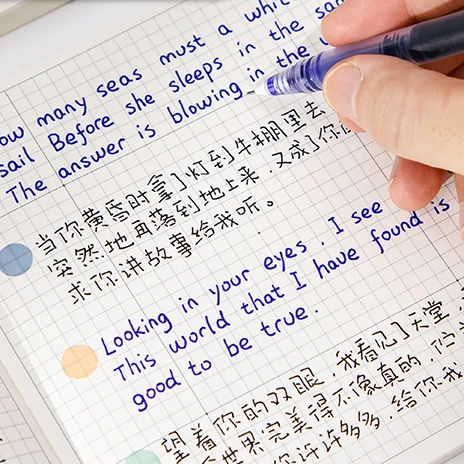 ow many seas must a whit
sail Before she sleeps in the sa
The answer is blowing in the
当你黄昏时拿了灯到牛棚里去
突然地再落到地上来,又成了你的
求你讲故事给我听。
Looking in your eyes, I see
This world that I have found is
good to be true.
望着你的双眼,我看见了天堂,
世界完美得不像真的,
你许许多多,给你我